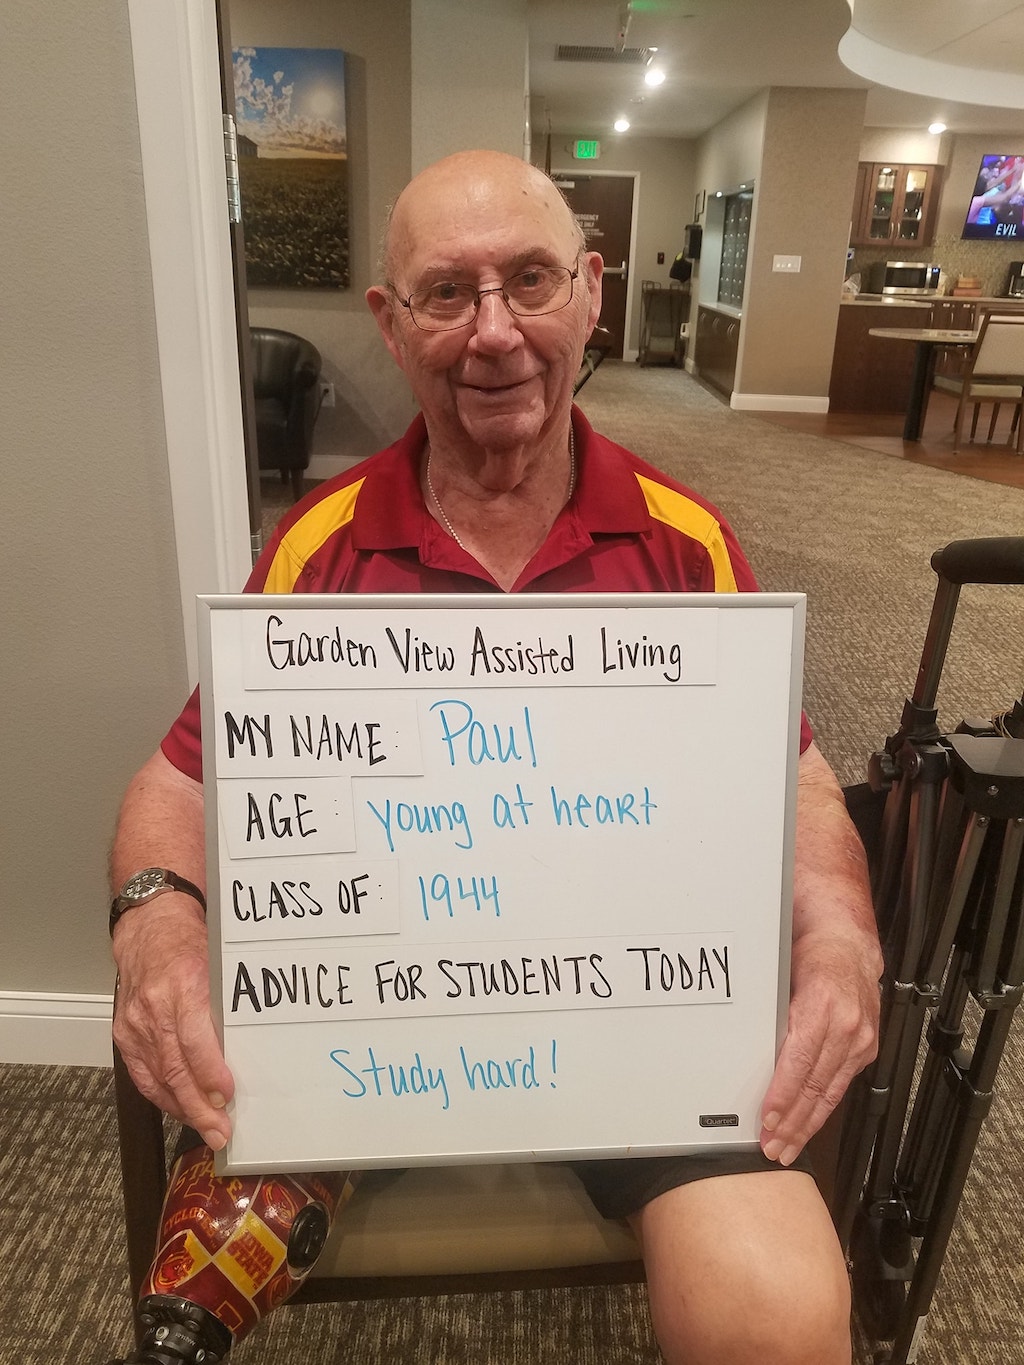 EXIT
EMERGENCY
EVIL
Garden View Assisted Living
MY NAME: Paul
AGE: young at heart
CLASS OF: 1944
ADVICE FOR STUDENTS TODAY
Study hard!
Quartet
STATE
CYCLONES
IOWA
STATE